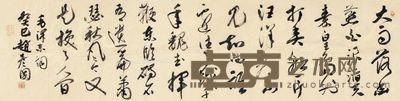 大雨落幽
燕白浪滔天
秦皇島外
打魚船一片
汪洋都不
見知向誰
邊往事越千
年魏武揮
鞭東臨碣石
有遺篇蕭
瑟秋風今又
是換了人間
毛澤東詞
癸巳趙彥國